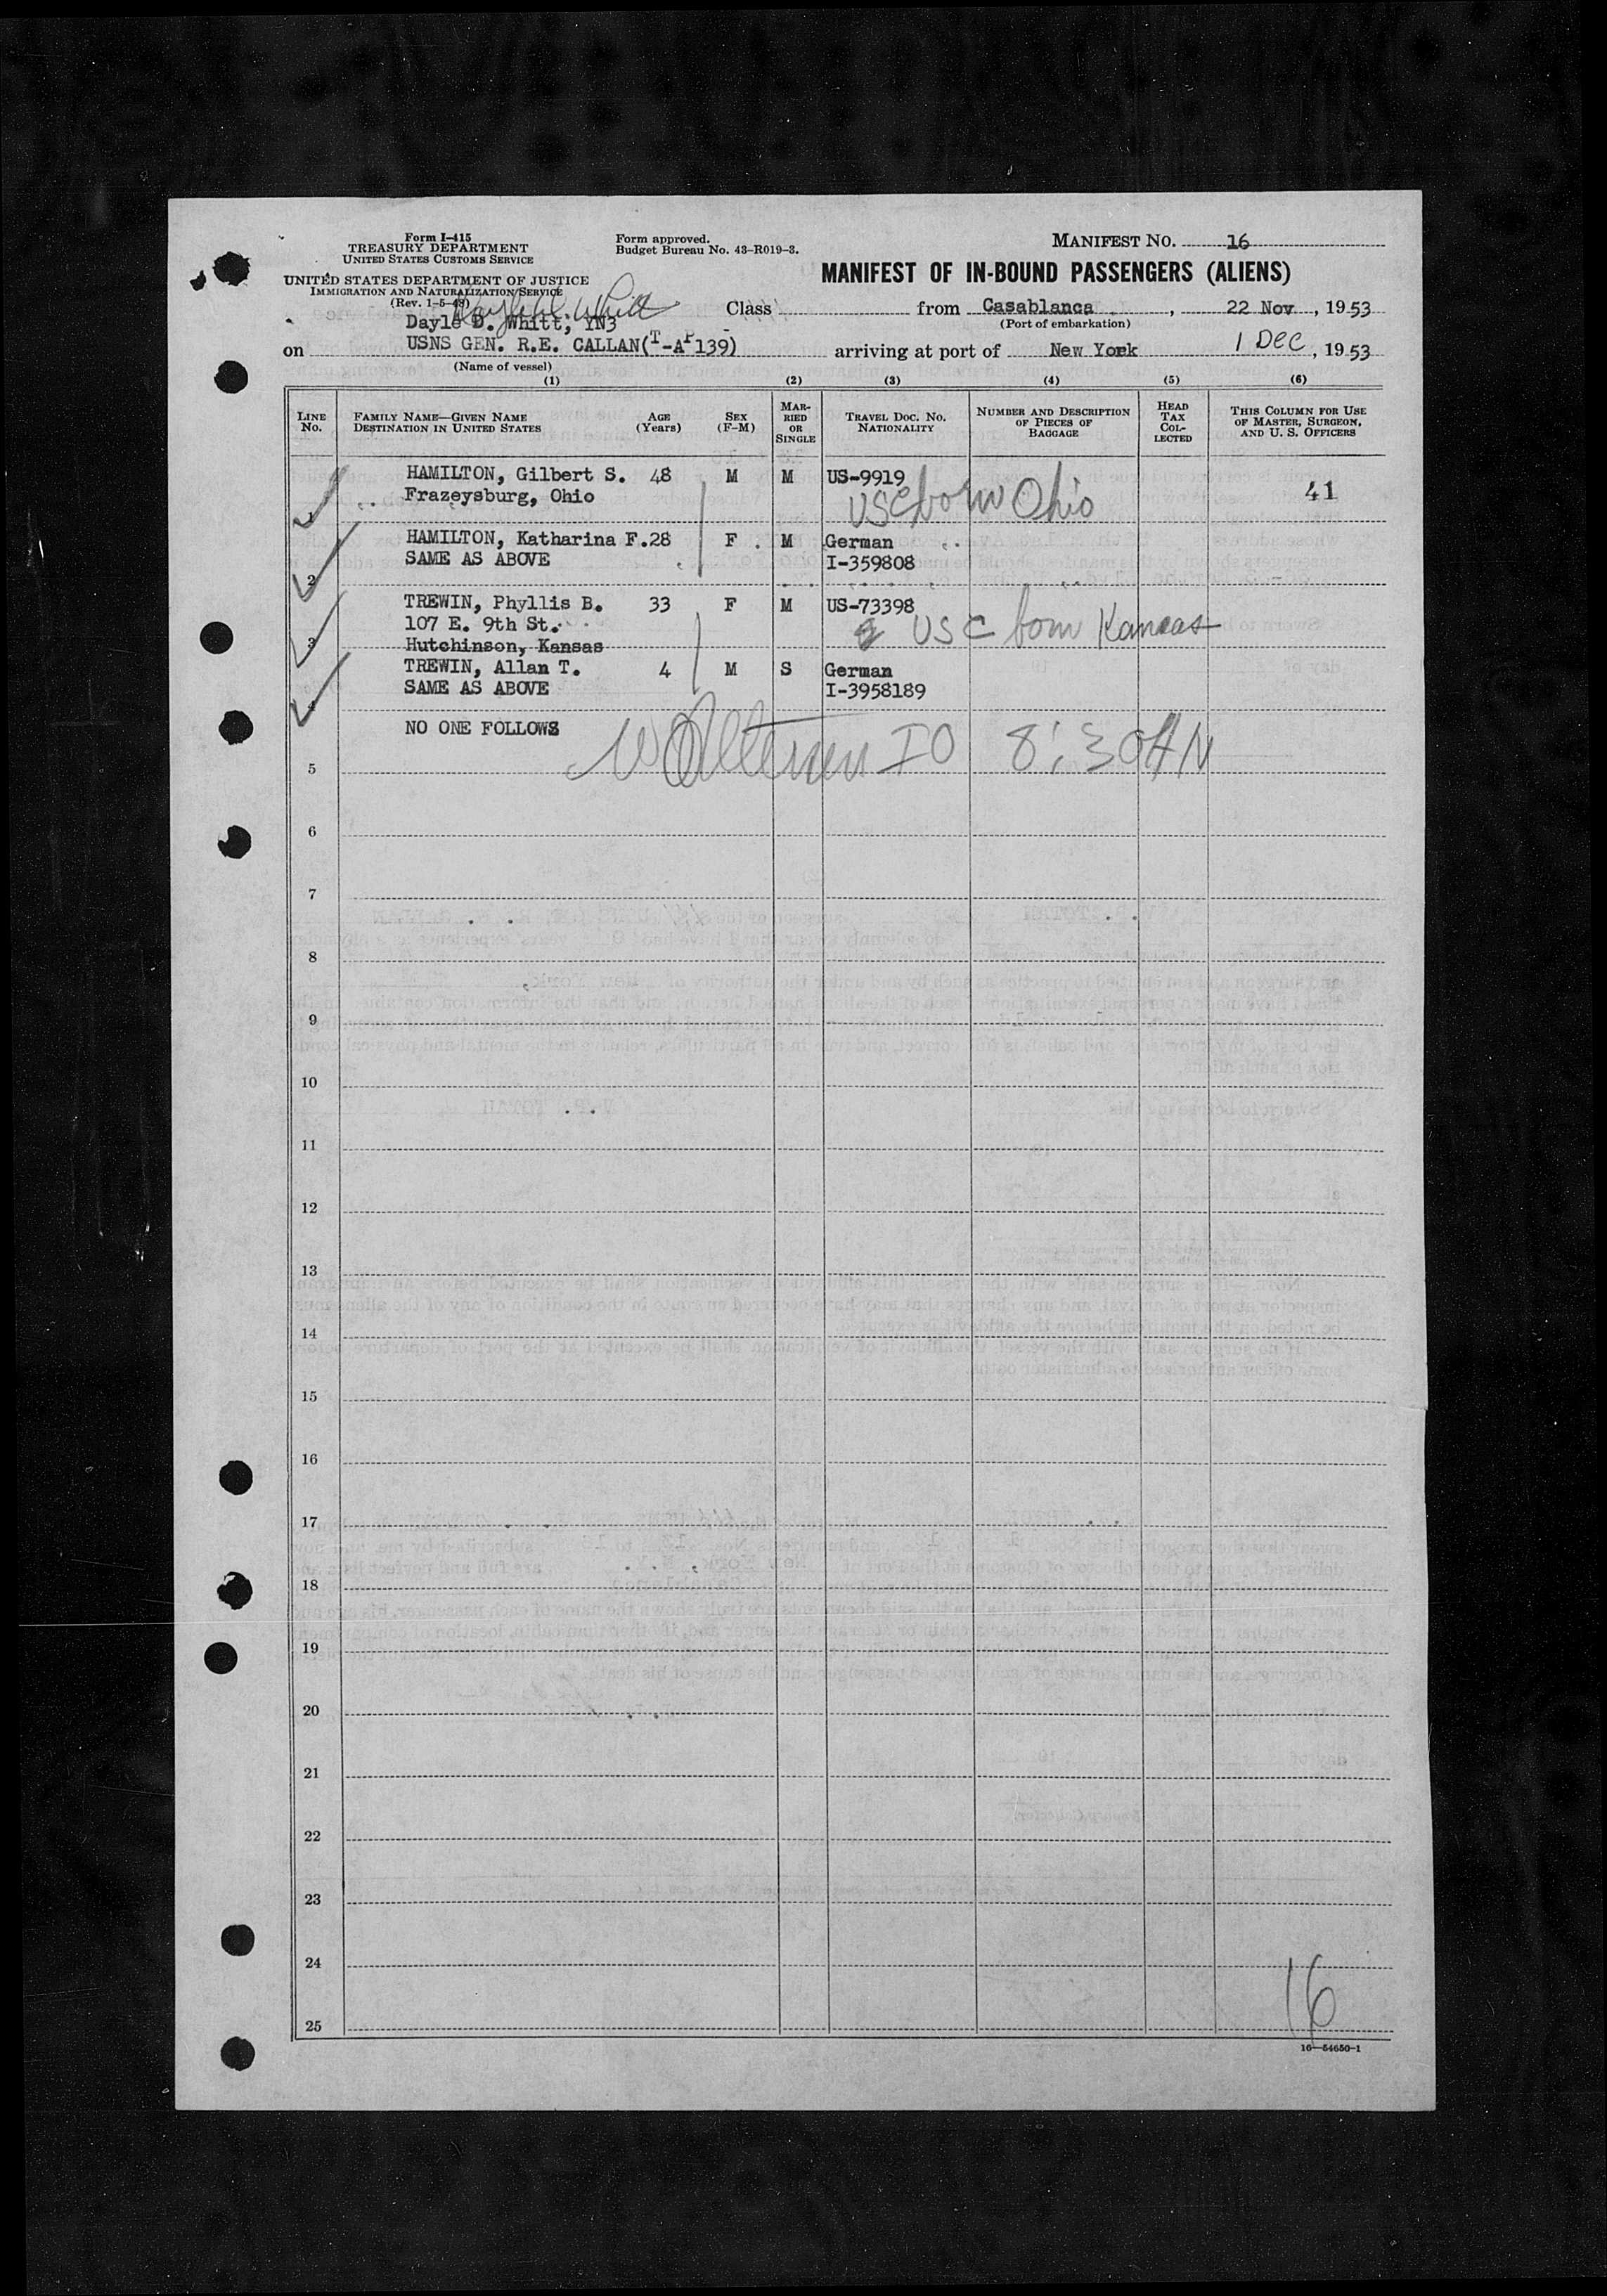 Form I-415
TREASURY DEPARTMENT
UNITED STATES CUSTOMS SERVICE
UNITED STATES DEPARTMENT OF JUSTICE
IMMIGRATION AND NATURALIZATION SERVICE
(Rev. 1-5-48)
Form approved.
Budget Bureau No. 43-R019-3.
MANIFEST NO. 16
MANIFEST OF IN-BOUND PASSENGERS (ALIENS)
Dayle D. Whitt
Dayle D. Whitt, YN3
Class from Casablanca, 22 Nov, 1953
(Port of embarkation)
on USNS GEN. R.E. CALLAN(T-AP139) arriving at port of New York 1 Dec, 1953
(Name of vessel)
(1) (2) (3) (4) (5) (6)
LINE NO. FAMILY NAME—GIVEN NAME DESTINATION IN UNITED STATES AGE (Years) SEX (F-M) MARRIED OR SINGLE TRAVEL DOC. NO. NATIONALITY NUMBER AND DESCRIPTION OF PIECES OF BAGGAGE HEAD TAX COLLECTED THIS COLUMN FOR USE OF MASTER, SURGEON, AND U. S. OFFICERS
HAMILTON, Gilbert S. 48 M M US-9919
1 Frazeysburg, Ohio USC born Ohio 41
HAMILTON, Katharina F. 28 F M German
2 SAME AS ABOVE I-359808
TREWIN, Phyllis B. 33 F M US-73398
107 E. 9th St. USC born Kansas
3 Hutchinson, Kansas
TREWIN, Allan T. 4 M S German
4 SAME AS ABOVE I-3958189
NO ONE FOLLOWS
IO 8:30AM
5
6
7
8
9
10
11
12
13
14
15
16
17
18
19
20
21
22
23
24
25
16
16—54650-1